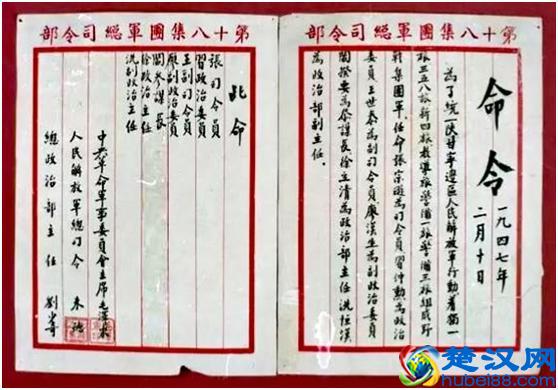 第十八集團軍總司令部
命令
一九四七年
二月十日
為了統一陕甘寧邊區人民解放軍行動，着獨一
旅三五八旅新四旅教導旅警備一旅警備三旅組成野
戰集團軍。任命張宗遜為司令員習仲勳為政治
委員王世泰為副司令員廖漢生為副政治委員
閻揆要為參謀長徐立清為政治部主任冼恒漢
為政治部副主任。
第十八集團軍總司令部
此命
張司令員
習政治委員
王副司令員
廖副政治委員
閻參謀長
徐政治主任
冼副政治主任
中央革命軍事委員會主席毛澤東
人民解放軍總司令 朱德
總政治部主任 劉少奇
楚汉网
hubei88.com